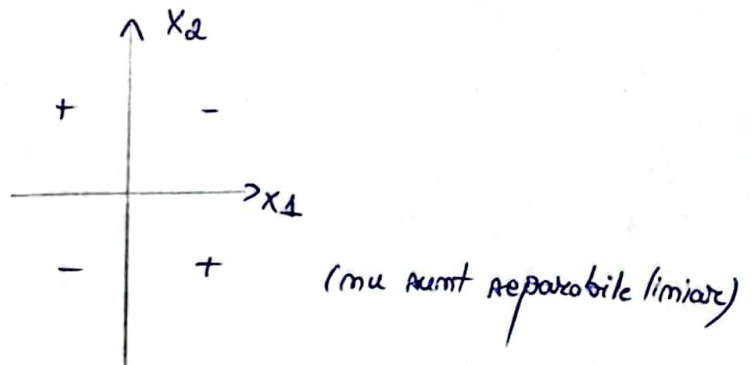 X2
+ -
X1
- +
(nu sunt separabile liniar)